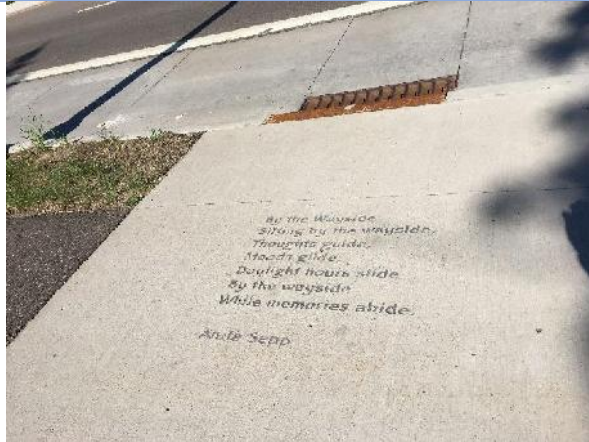 By the Wayside
Sitting by the wayside,
Thoughts guide,
Moods glide,
Daylight hours slide
By the wayside
While memories abide.
Sepp